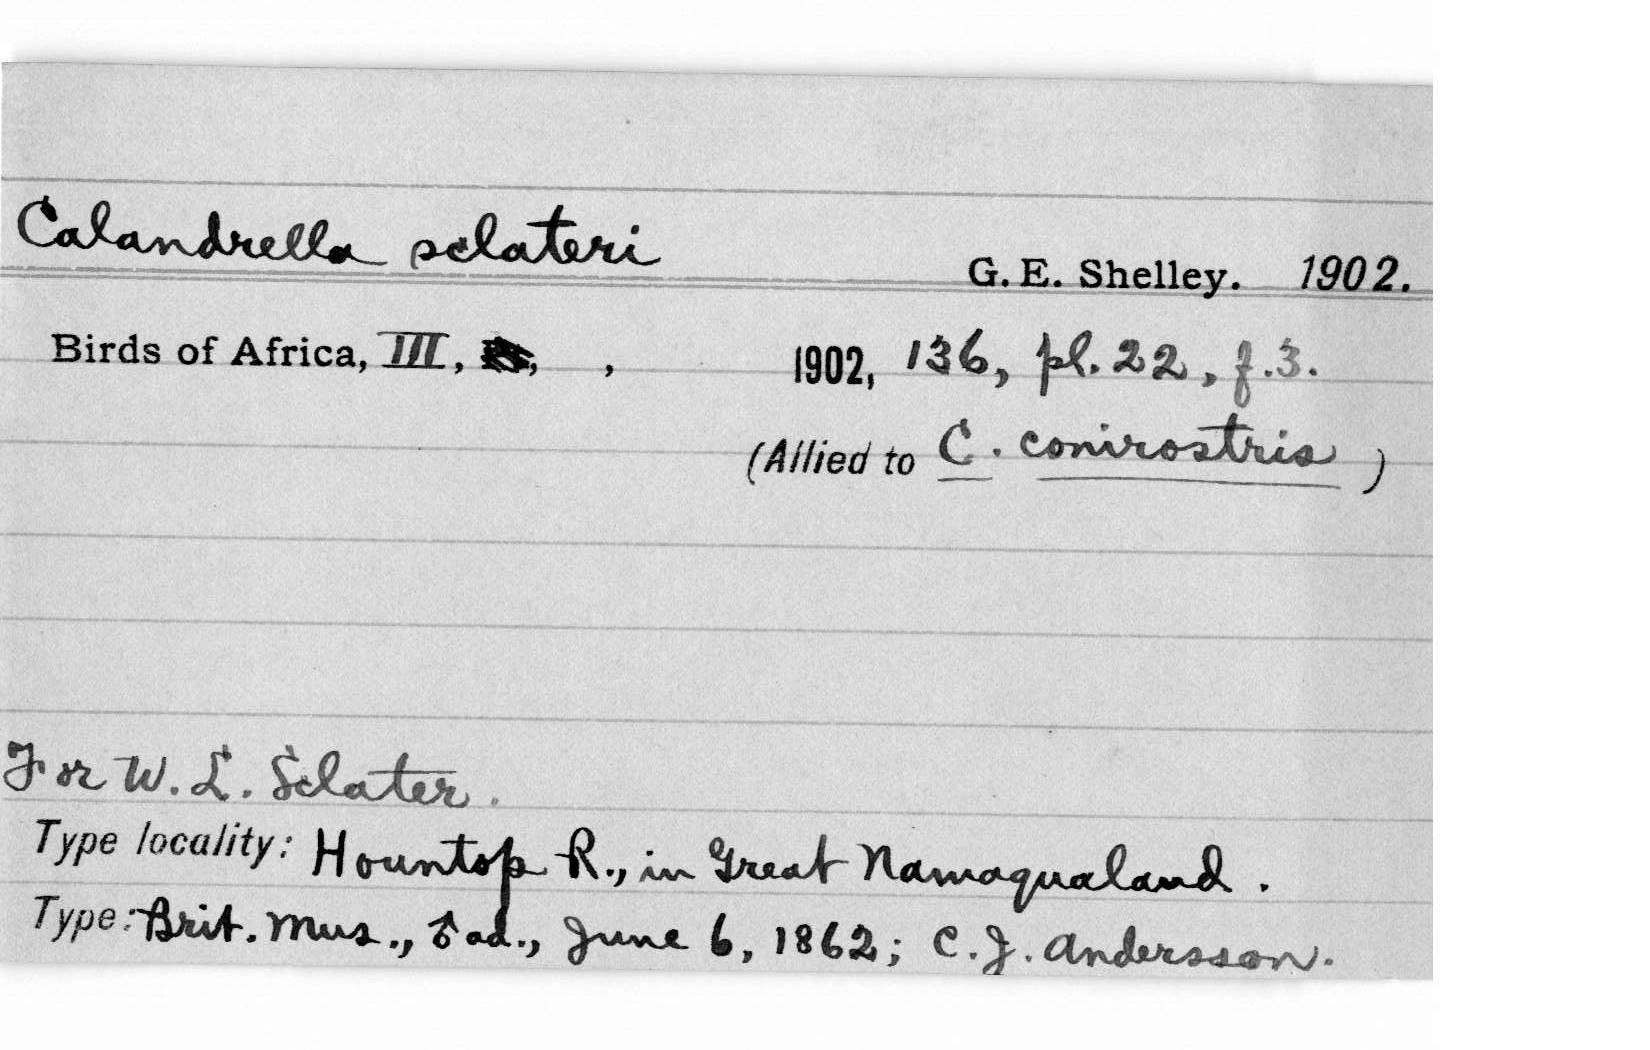 Calandrella sclateri
G. E. Shelley. 1902.
Birds of Africa, III, , , 1902, 136, pl. 22, f. 3.
(Allied to C. conirostris )
For W. L. Sclater.
Type locality: Hountop R., in Great Namaqualand.
Type: Brit. Mus., ♂ ad., June 6, 1862; C. J. Andersson.